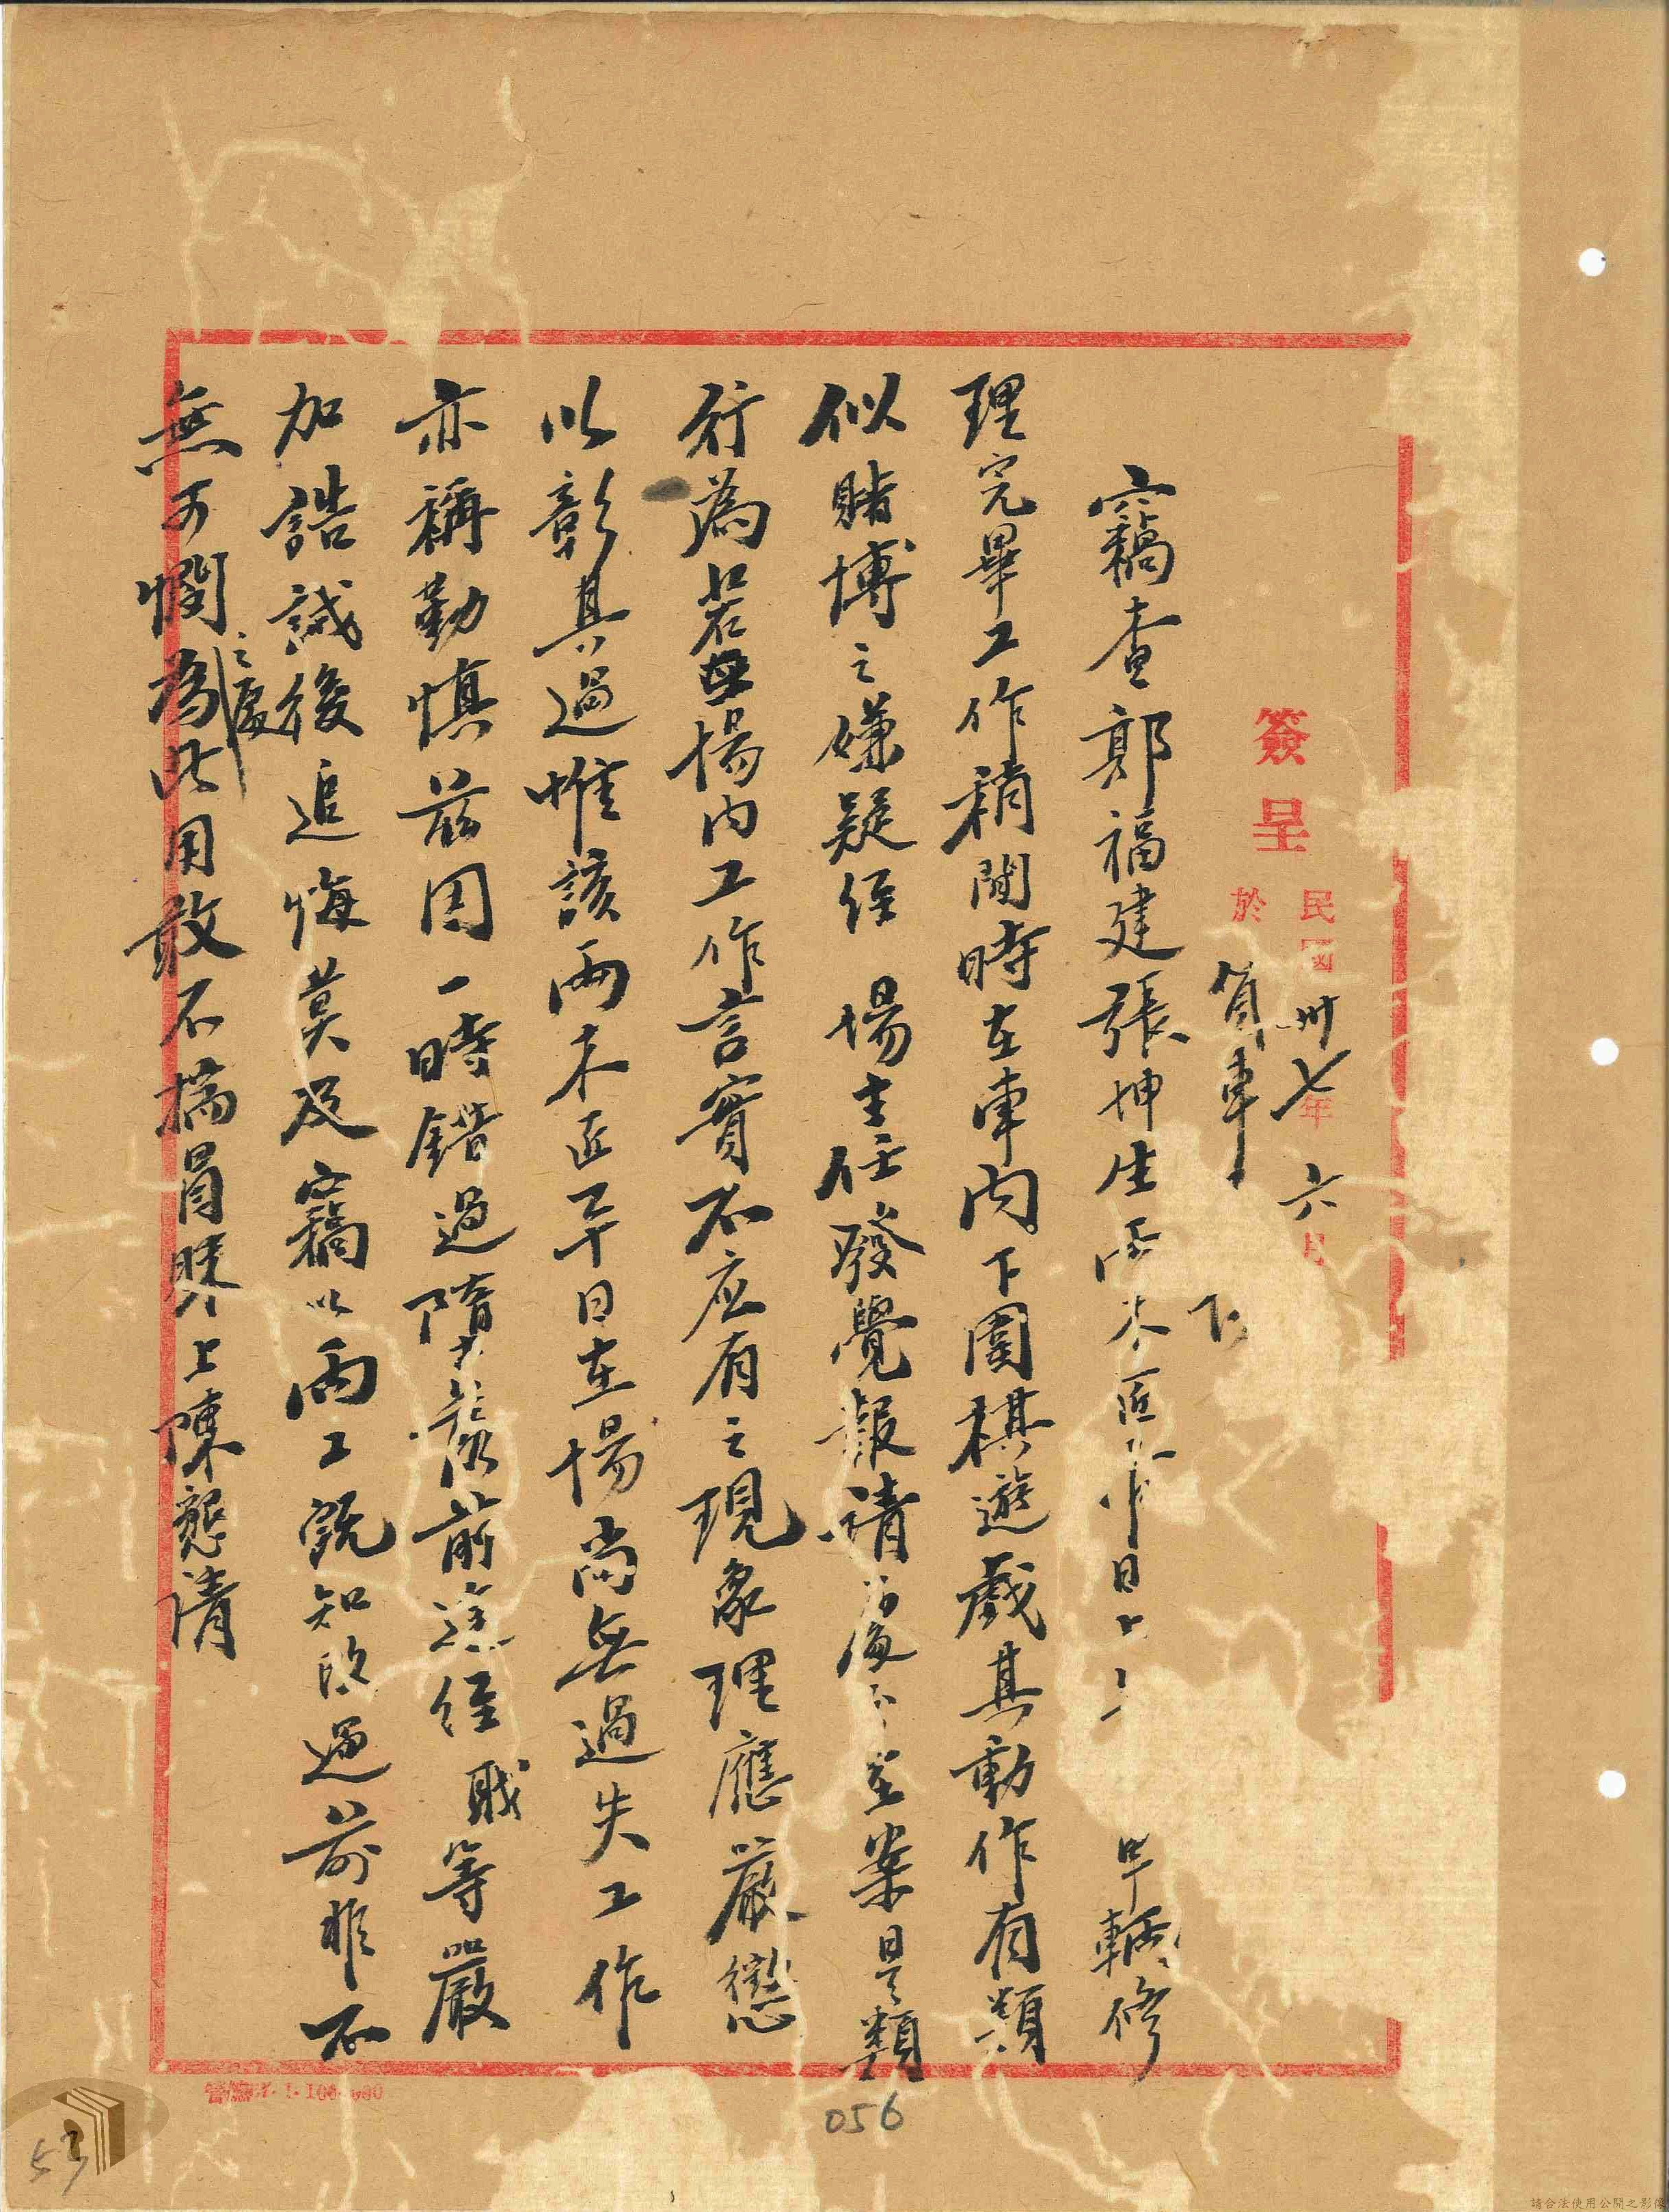 簽呈 民國卅七年六月
於貨車
竊查郭福建張坤生兩本區日早輛修
理完畢工作稍閒時在車內下圍棋遊戲其動作有類
似賭博之嫌疑經 場主任發覺報請在案是類
行為若在場內工作言實不应有之現象理應嚴懲
以彰其過惟該兩木匠平日在場尚無過失工作
亦稱勤慎茲因一時錯過隳落前途經 戝等嚴
加誥誡後追悔莫及竊以兩工既知改過前非不
無可憫之處為此用敢不揣冒昧上陳懇請
056
53
請合法使用公開之影像